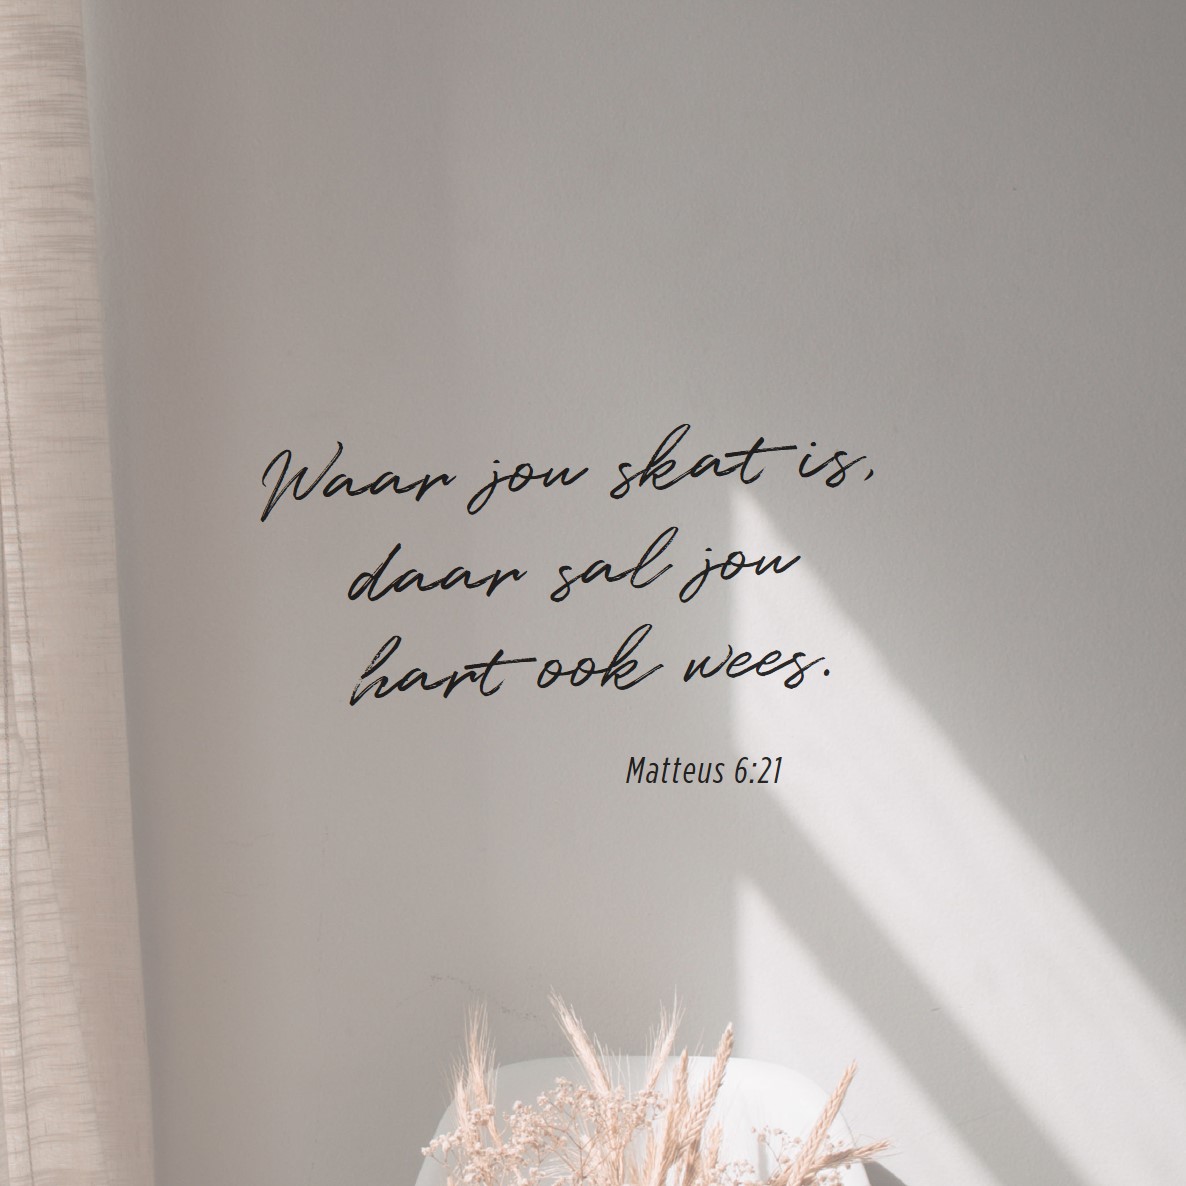 Waar jou skat is,
daar sal jou
hart ook wees.
Matteus 6:21